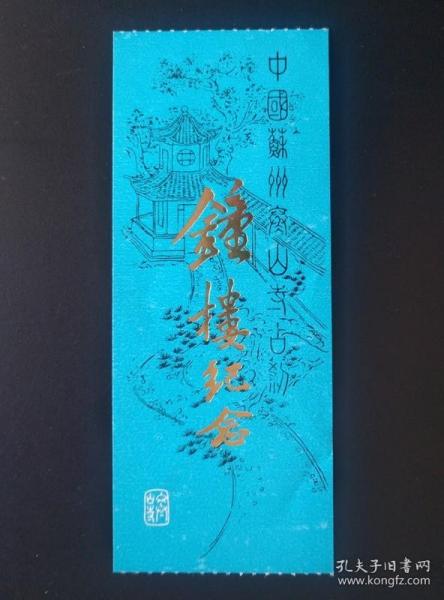 中國蘇州寒山寺古刹
鐘樓紀念
孔夫子旧书网
www.kongfz.com